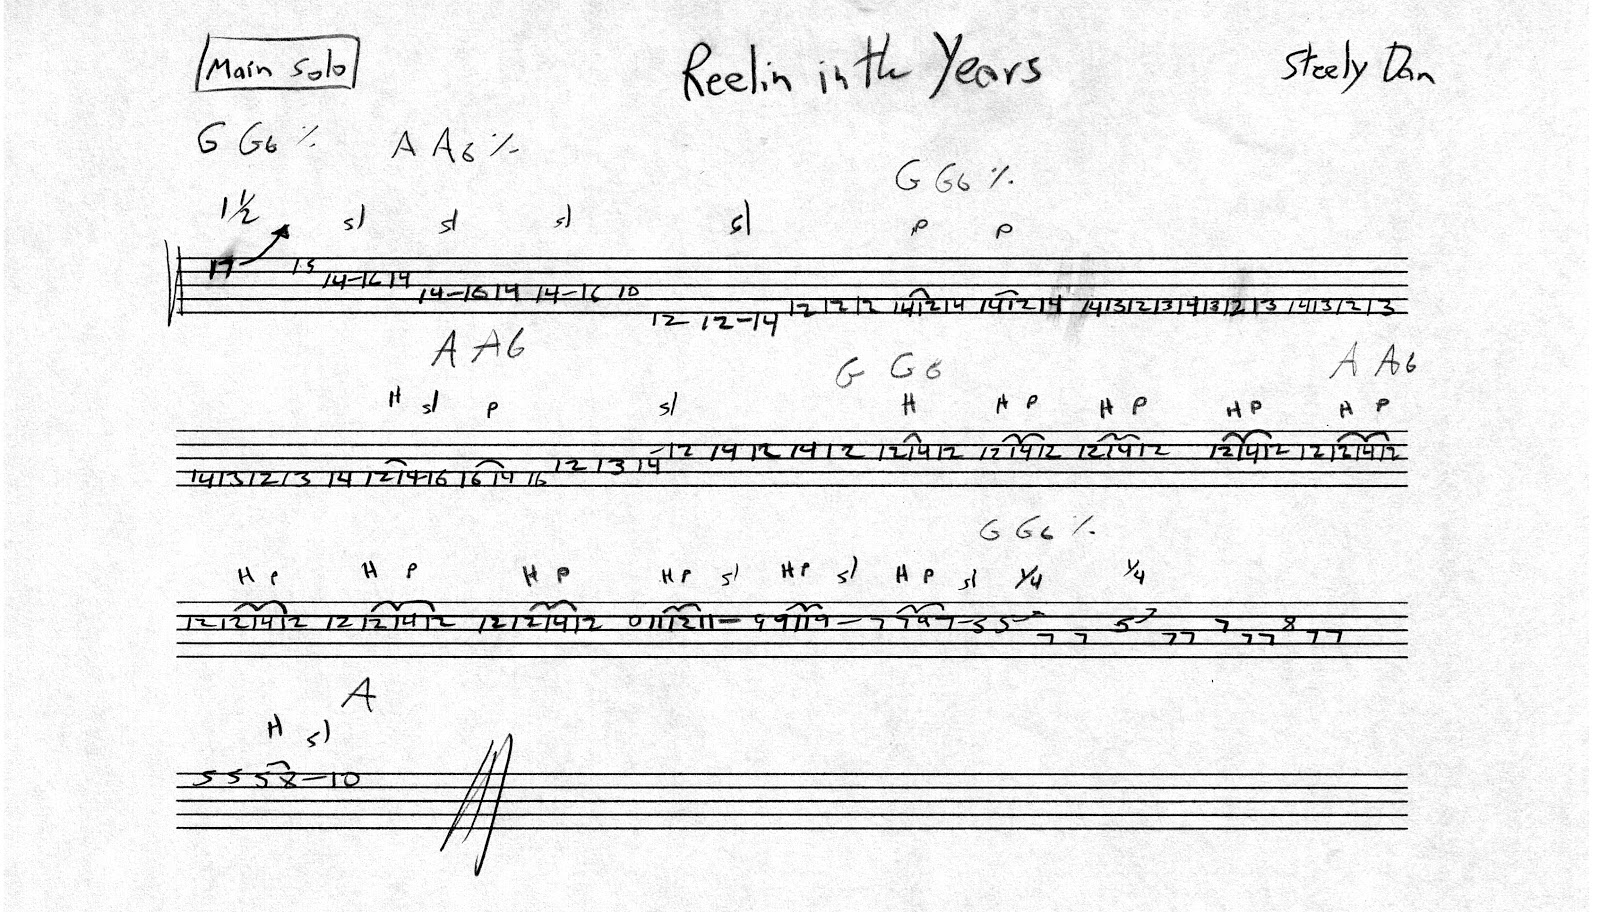 Main Solo Reelin in the Years Steely Dan
G G6 ٪ A A6 ٪
G G6 ٪
1½ sl sl sl sl P P
17 15 14-16 14 14-16 14 14-16 10 12 12-14 12 12 12 14 12 14 14 12 14 14 13 12 13 14 13 12 13 14 13 12 13
A A6 G G6 A A6
H sl P sl H H P H P H P H P
14 13 12 13 14 12 14-16 16 14 16 12 13 14-12 14 12 14 12 12 14 12 12 14 12 12 14 12 12 14 12 12 12 14 12
G G6 ٪
H P H P H P H P sl H P sl H P sl ¼ ¼
12 12 14 12 12 12 14 12 12 12 14 12 0 11 12 11- 9 9 11 9-7 7 9 7-5 5 7 7 5 7 7 7 7 7 8 7 7
A
H sl
5 5 5 8-10